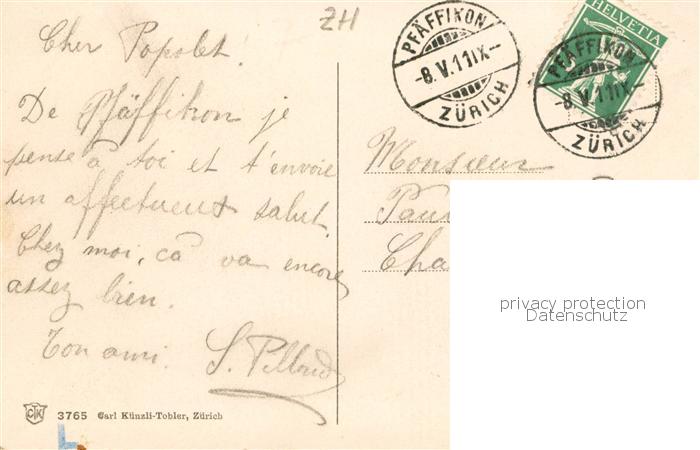 ZH
Cher Popolet!
De Pfäffikon je
pense à toi et t'envoie
un affectueux salut.
Chez moi, ça va encore
assez bien.
Ton ami. S.
CTK 3765 Carl Künzli-Tobler, Zürich
PFÄFFIKON
-8.V.11IX--
ZÜRICH
HELVETIA
PFÄFFIKON
-8.V.11IX-
ZÜRICH
Monsieur
privacy protection
Datenschutz